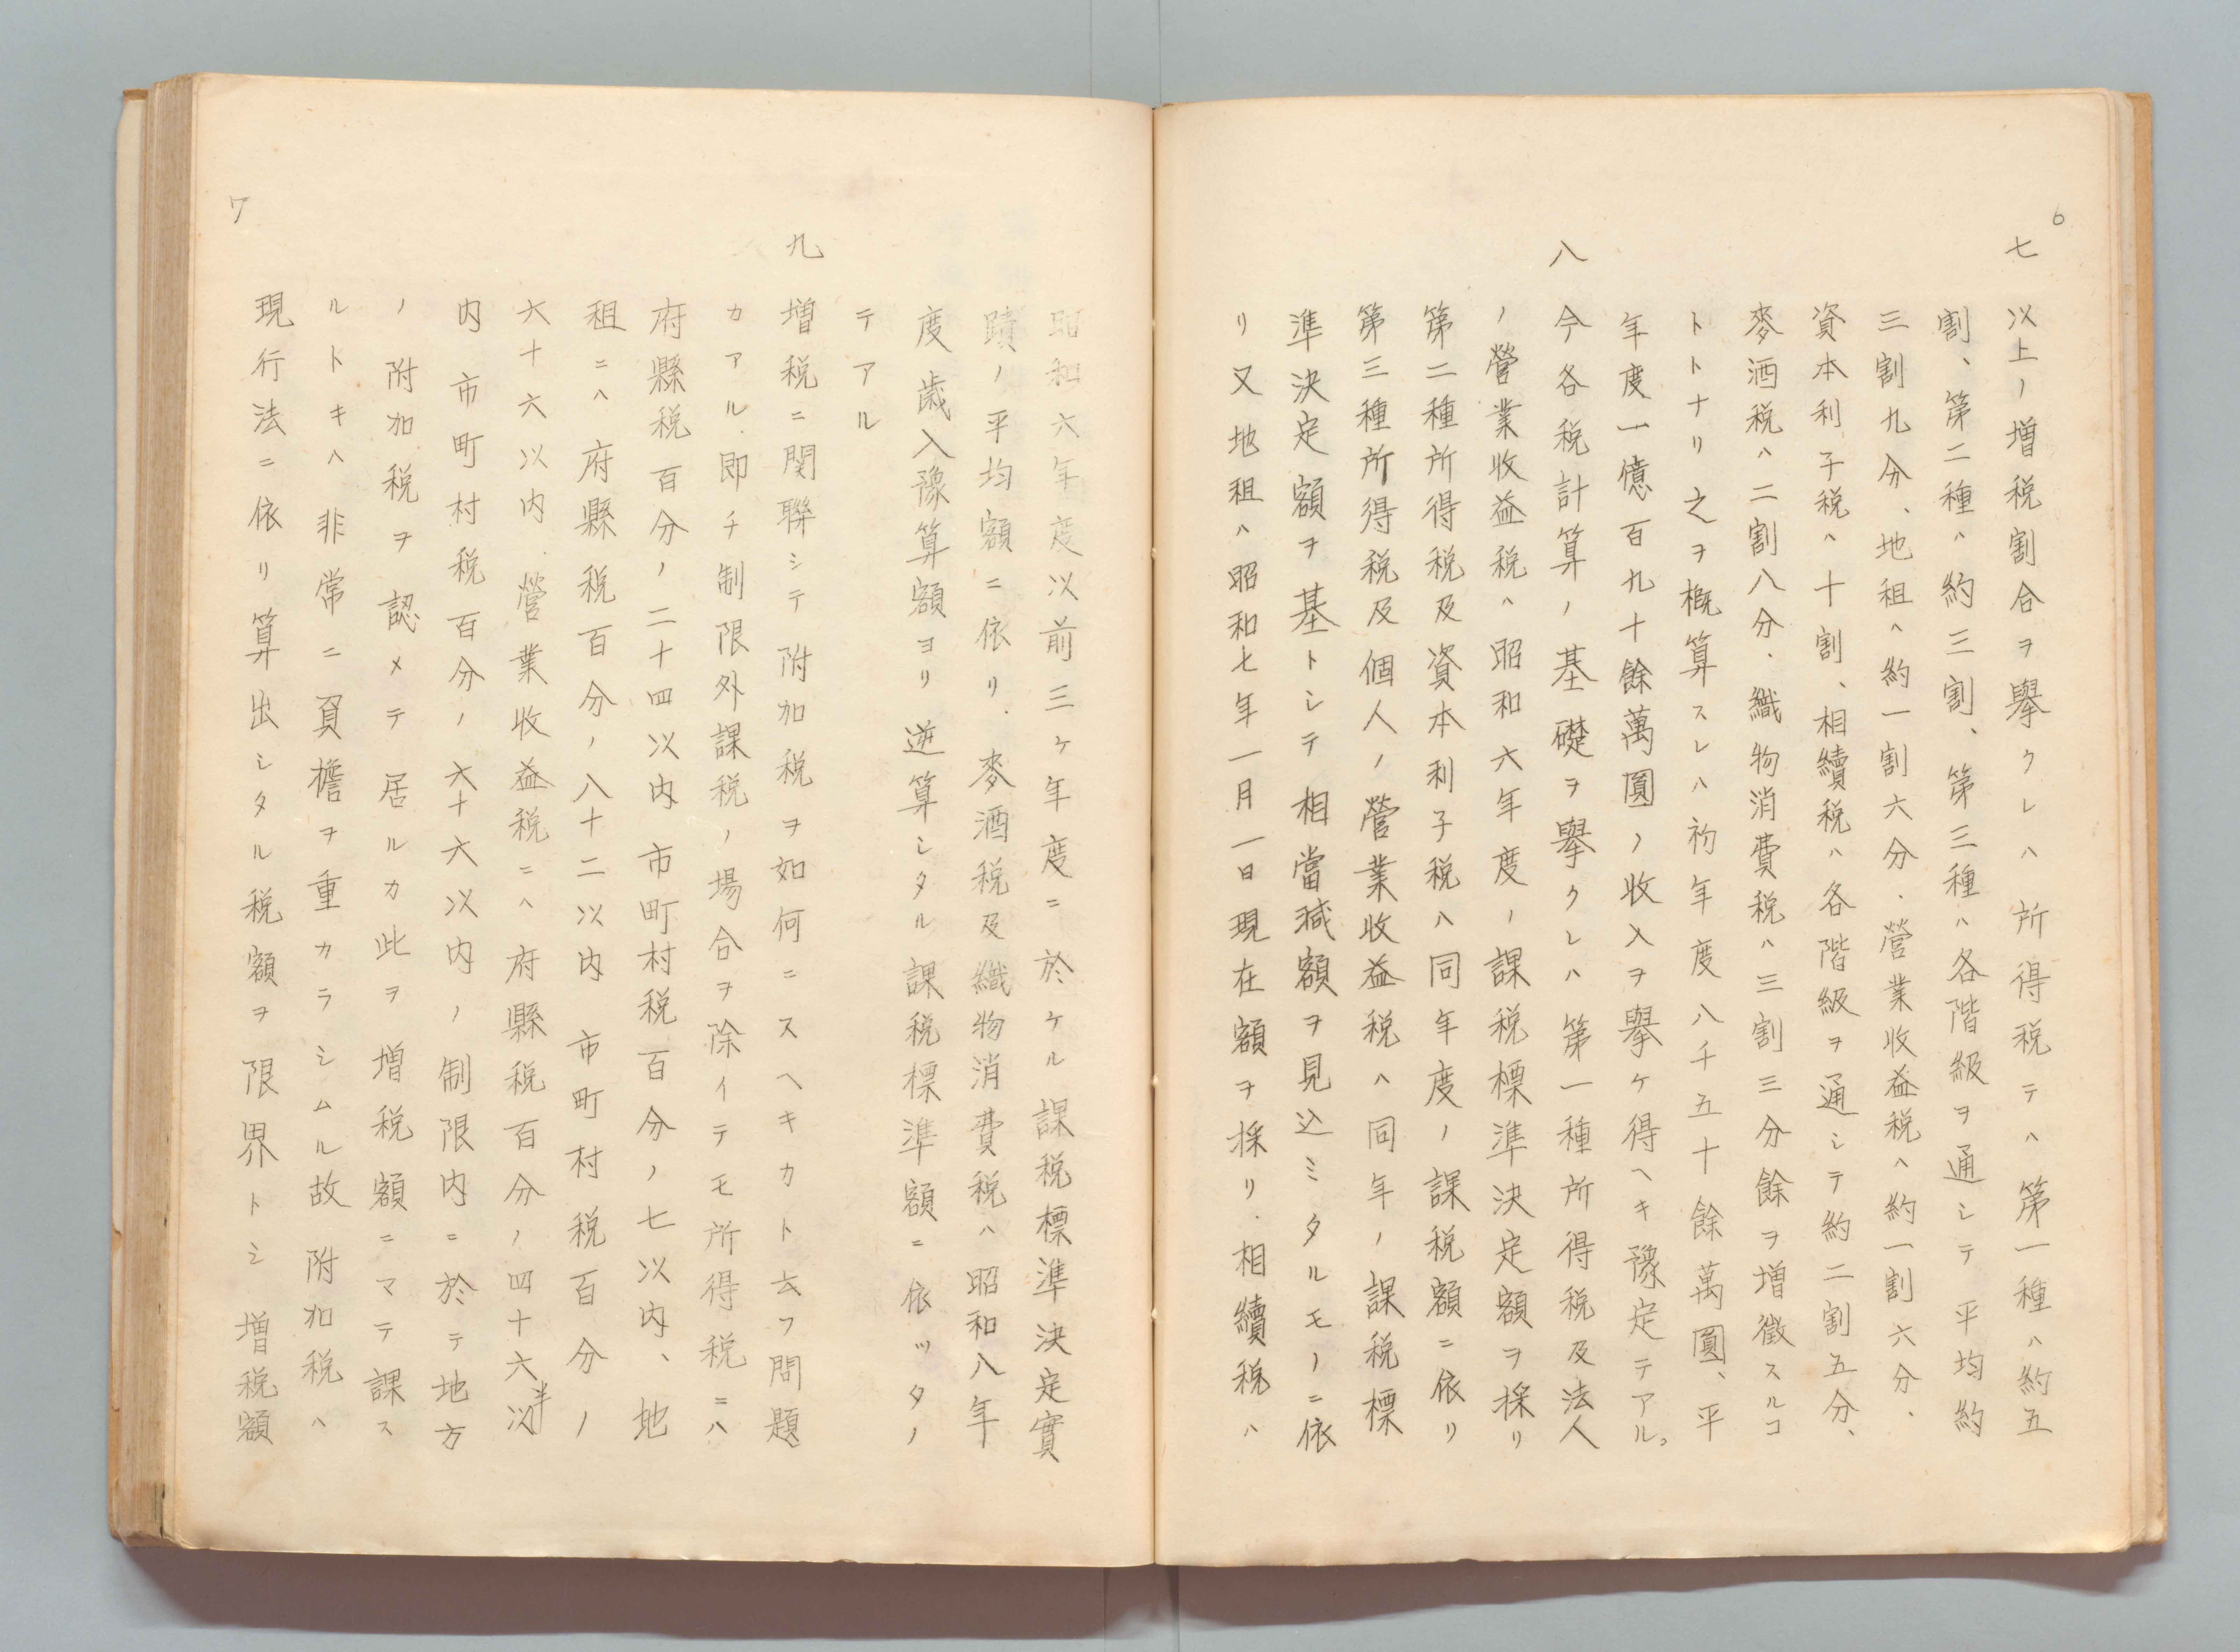 6
七 以上ノ増税割合ヲ擧クレハ所得税テハ第一種ハ約五
割、第二種ハ約三割、第三種ハ各階級ヲ通シテ平均約
三割九分、地租ハ約一割六分、營業收益税ハ約一割六分、
資本利子税ハ十割、相續税ハ各階級ヲ通シテ約二割五分、
麥酒税ハ二割八分、織物消費税ハ三割三分餘ヲ増徴スルコ
トトナリ之ヲ概算スレハ初年度八千五十餘萬圓、平
年度一億百九十餘萬圓ノ收入ヲ擧ケ得ヘキ豫定テアル。
八 今各税計算ノ基礎ヲ擧クレハ第一種所得税及法人
ノ營業收益税ハ昭和六年度ノ課税標準決定額ヲ採リ
第二種所得税及資本利子税ハ同年度ノ課税額ニ依リ
第三種所得税及個人ノ營業收益税ハ同年ノ課税標
準決定額ヲ基トシテ相當減額ヲ見込ミタルモノニ依
リ又地租ハ昭和七年一月一日現在額ヲ採リ、相續税ハ
昭和六年度以前三ヶ年度ニ於ケル課税標準決定實
蹟ノ平均額ニ依リ、麥酒税及織物消費税ハ昭和八年
度歳入豫算額ヨリ逆算シタル課税標準額ニ依ッタノ
テアル
九 増税ニ関聯シテ附加税ヲ如何ニスヘキカト云フ問題
カアル、即チ制限外課税ノ場合ヲ除イテモ所得税ニハ
府縣税百分ノ二十四以内市町村税百分ノ七以内、地
租ニハ府縣税百分ノ八十二以内市町村税百分ノ
六十六以内、營業收益税ニハ府縣税百分ノ四十六半以
内市町村税百分ノ六十六以内ノ制限内ニ於テ地方
ノ附加税ヲ認メテ居ルカ此ヲ増税額ニマテ課ス
ルトキハ非常ニ負擔ヲ重カラシムル故附加税ハ
現行法ニ依リ算出シタル税額ヲ限界トシ増税額
7